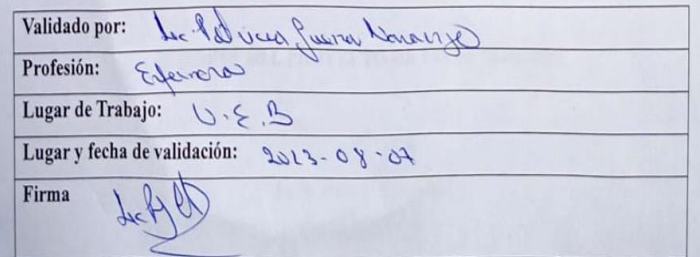 Validado por: Lic. Patricia Guerra Naranjo
Profesión: Enfermera
Lugar de Trabajo: U.E.B
Lugar y fecha de validación: 2023-08-07
Firma